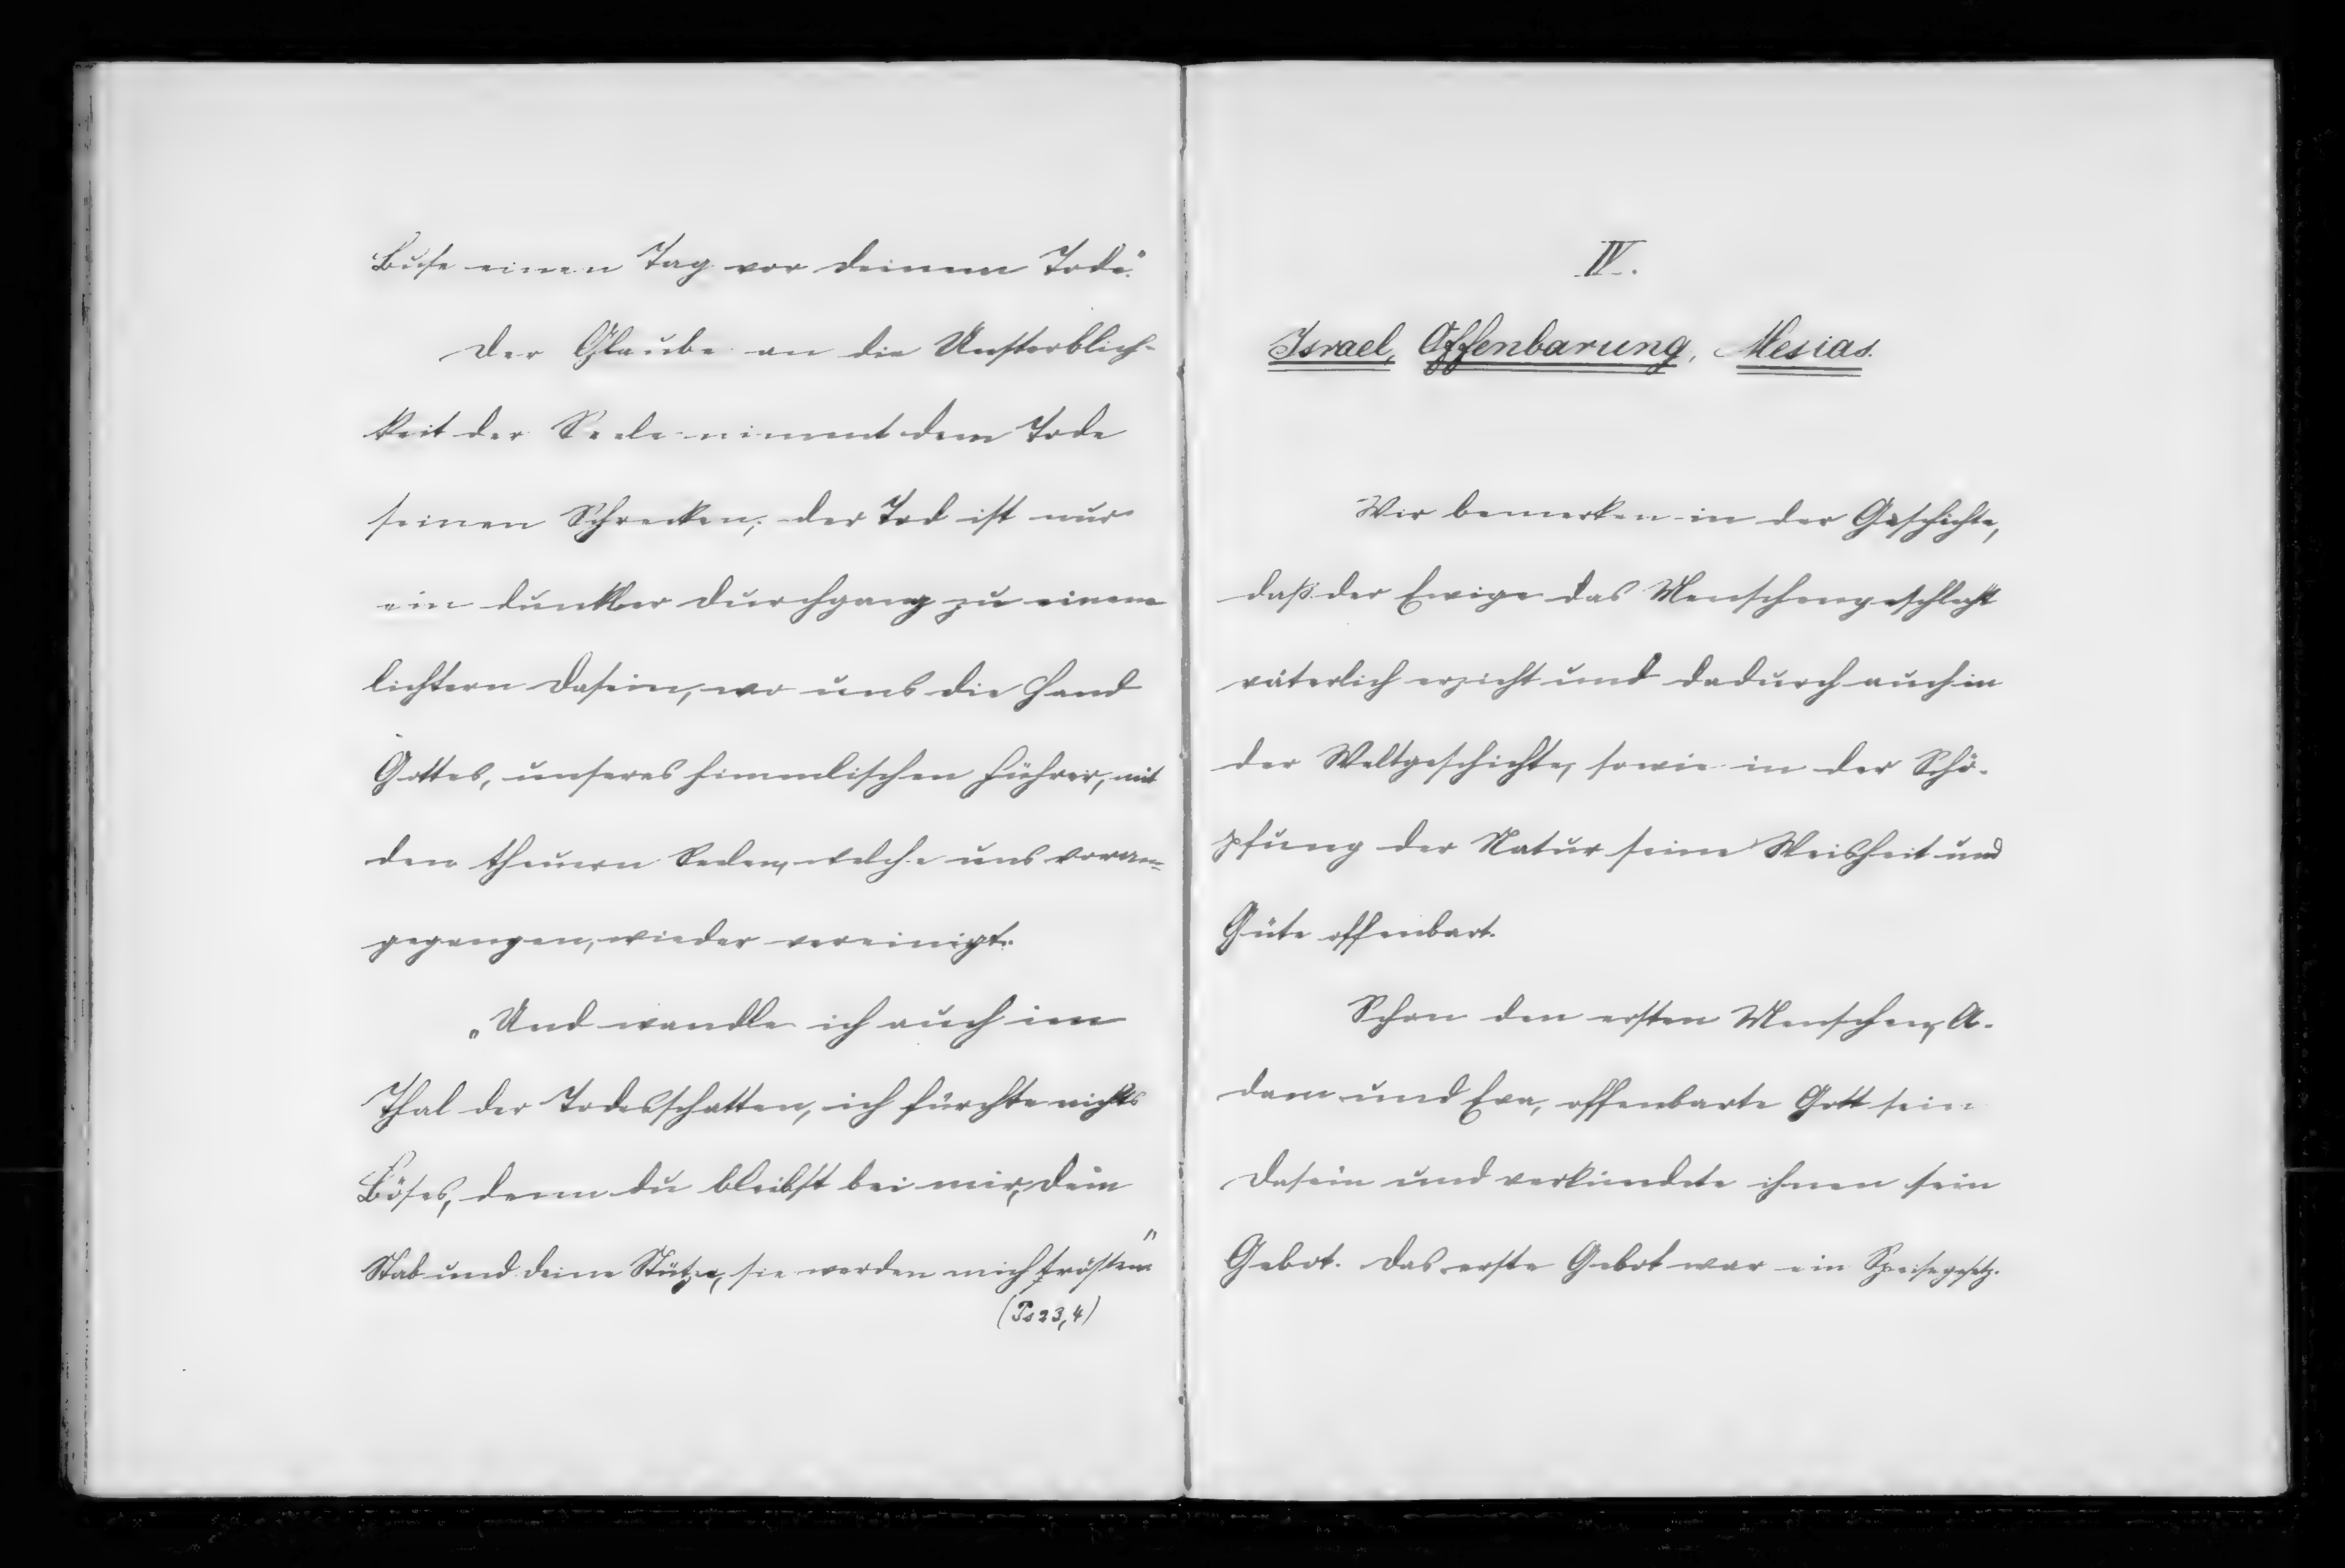 Buße einen Tag vor deinem Tode."
Der Glaube an die Unsterblich-
keit der Seele nimmt dem Tode
seinen Schrecken; der Tod ist nur
ein dunkler Durchgang zu einem
lichtern Dasein, wo uns die Hand
Gottes, unseres himmlischen Führer, mit
den theuern Seelen, welche uns voran-
gegangen, wieder vereinigt.
„Und wandle ich auch im
Thal der Todesschatten, ich fürchte nichts
Böses, denn du bleibst bei mir, dein
Stab und deine Stütze, sie werden mich trösten"
(Ps 23, 4)
IV.
Israel, Offenbarung, Mesias.
Wir bemerken in der Geschichte,
daß der Ewige das Menschengeschlecht
väterlich erzieht und dadurch auch in
der Weltgeschichte, sowie in der Schö-
pfung der Natur seine Weisheit und
Güte offenbart.
Schon den ersten Menschen, A-
dam und Eva, offenbarte Gott sein
Dasein und verkündete ihnen sein
Gebot. Das erste Gebot war ein Speisegesetz.